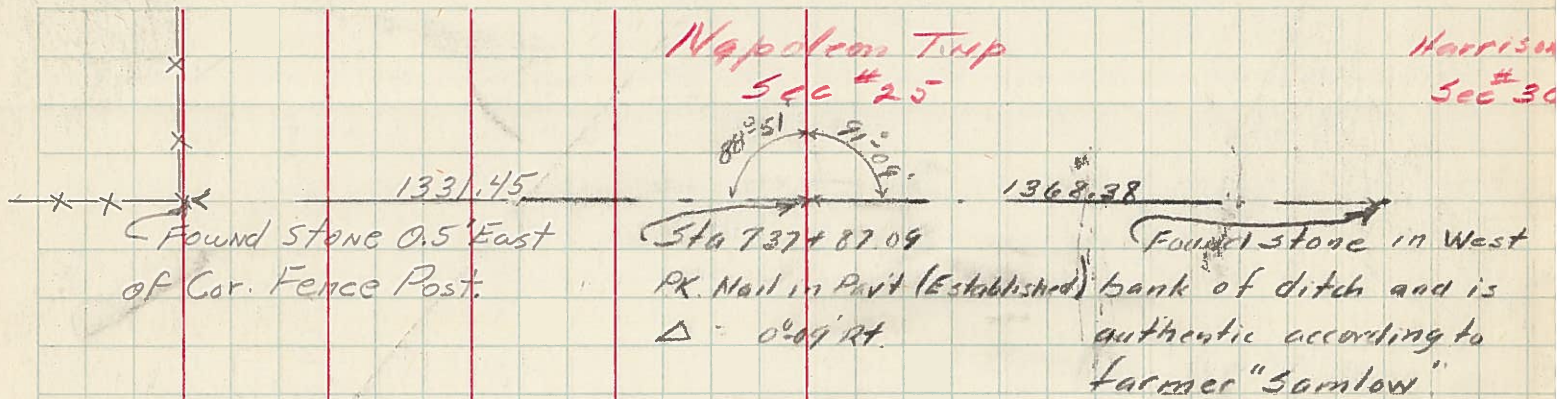 Napoleon Twp
Sec #25
Harrison
Sec #30
88°-51'
91°-09'
1331.45
1368.38
Found Stone 0.5' East
of Cor. Fence Post.
Sta 737+87.09
P.K. Nail in Pav't (Established)
Δ = 0°-09' Rt.
Found stone in West
bank of ditch and is
authentic according to
farmer "Samlow".